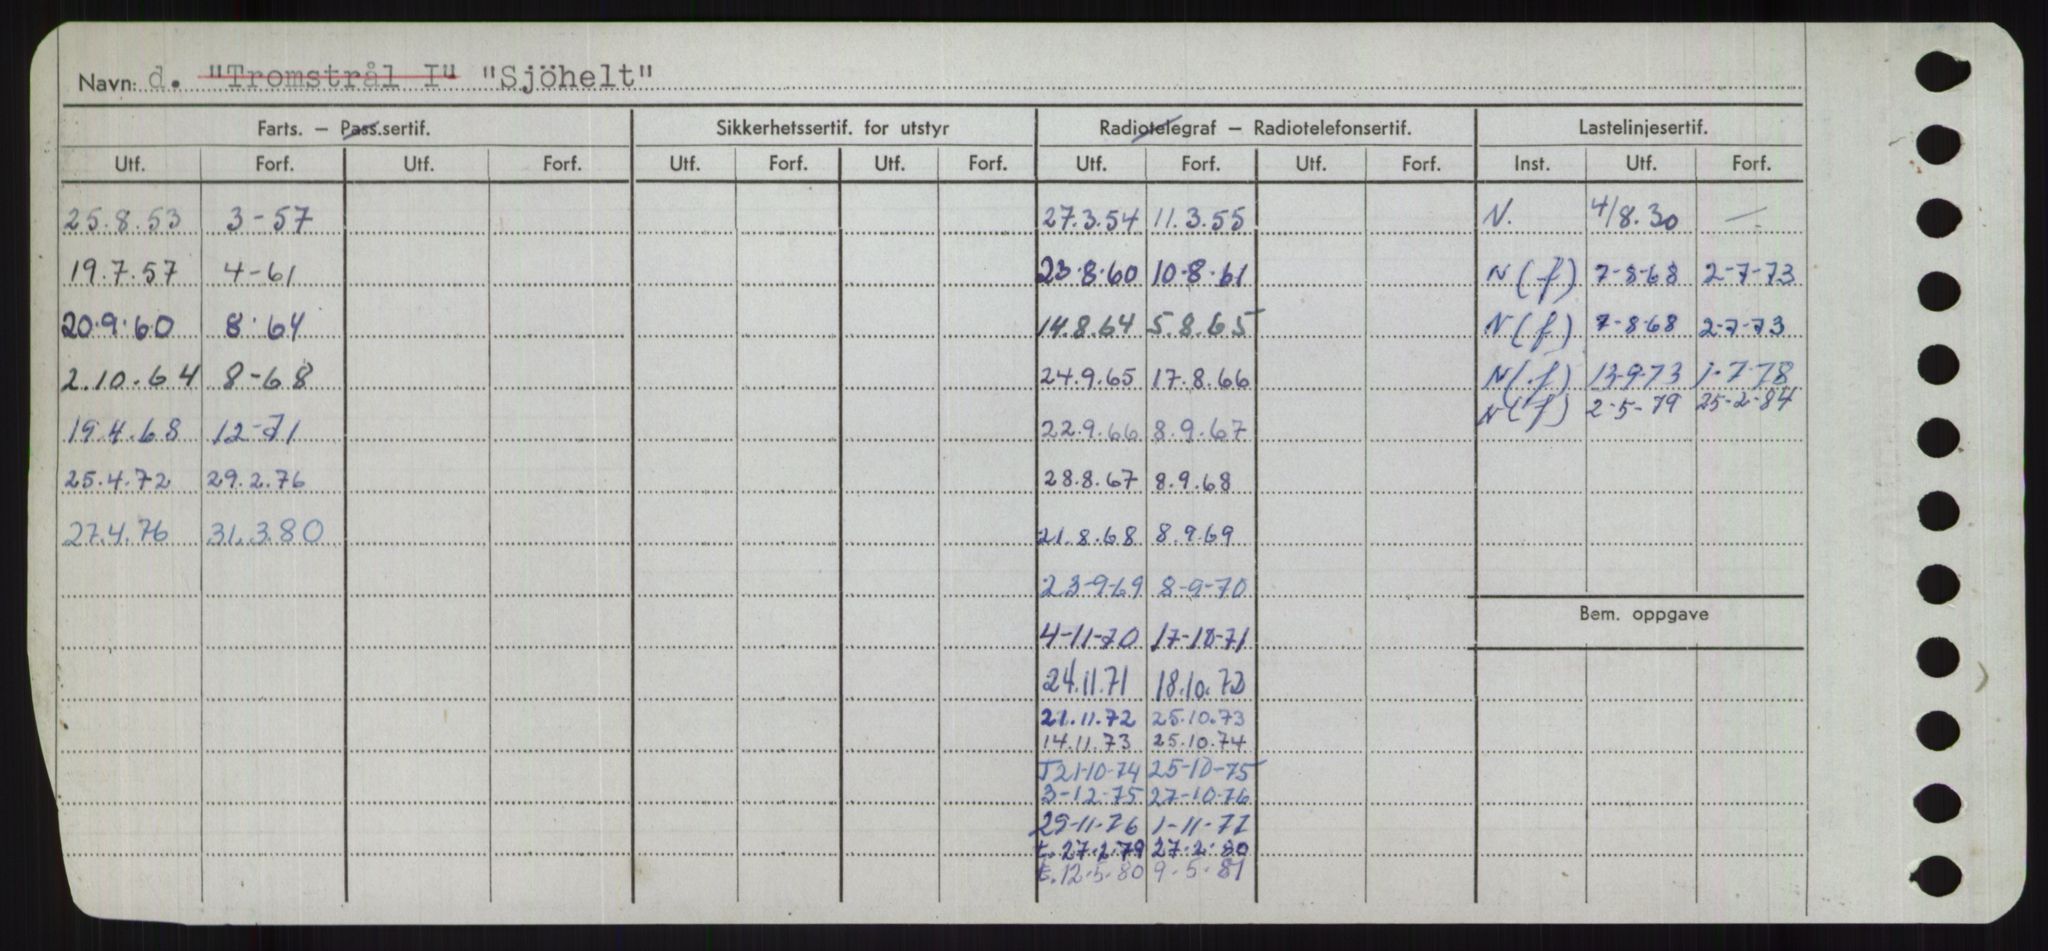 Navn: d. "Tromstrål I" "Sjöhelt"
Farts. – Pass.sertif. Sikkerhetssertif. for utstyr Radiotelegraf – Radiotelefonsertif. Lastelinjesertif.
Utf. Forf. Utf. Forf. Utf. Forf. Utf. Forf. Utf. Forf. Utf. Forf. Inst. Utf. Forf.
25.8.53 3-57 27.3.54 11.3.55 N. 4/8.30 —
19.7.57 4-61 23.8.60 10.8.61 N(f) 7-8-68 2-7-73
20.9.60 8.64 14.8.64 5.8.65 N(f) 7-8-68 2-7-73
2.10.64 8-68 24.9.65 17.8.66 N(f) 13-9-73 1-7-78
N(f) 2-5-79 25-2-84
19.4.68 12-71 22.9.66 8.9.67
25.4.72 29.2.76 28.8.67 8.9.68
27.4.76 31.3.80 21.8.68 8.9.69
23-9-69 8-9-70
Bem. oppgave
4-11-70 17-10-71
24.11.71 18.10.72
21.11.72 25.10.73
14.11.73 25.10.74
T21-10-74 25-10-75
3-12-75 27-10-76
29-11-76 1-11-77
t. 27.2.79 27.2.80
t. 12.5.80 9.5.81